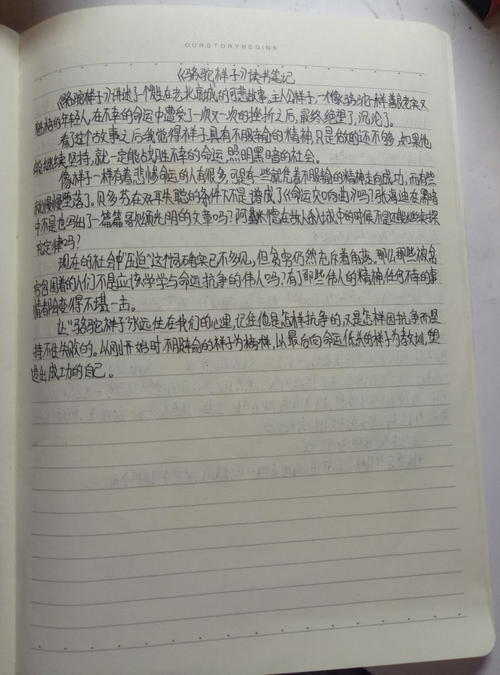 OURSTORYBEGINS
《骆驼祥子》读书笔记
《骆驼祥子》讲述了个发生在老北京城的可悲故事。主人公祥子,一个像骆驼一样善良老实又
的年轻人,在不幸的命运中遭受了一次又一次的挫折之后,最终绝望了,沉沦了。
看了这个故事之后我觉得祥子具有不服输的精神,只是做的还不够,如果他
能继续坚持,就一定能战胜不幸的命运,照明黑暗的社会。
像祥子一样有着悲惨命运的人有很多,可是有一些就凭着不服输的精神走向成功,而有些
就慢慢堕落了。贝多芬在双耳失聪的条件下不是谱成了《命运交响曲》吗?张海迪在
中不是也写出了一篇篇歌颂光明的文章吗?阿基米德在敌人的战火中的时候不是还能继续探
究定律吗?
现在的社会中"压迫"这个词确实已不多见,但贫穷仍然充斥着角落。那么那些被贫
穷包围着的人们不是应该学学与命运抗争的伟人吗?有了那些伟人的精神,任何不幸的事
情都会变得不堪一击。
让"骆驼祥子"永远住在我们的心里,记住他是怎样抗争的,又是怎样因抗争而坚
持不住失败的。从刚开始时不服输的祥子为榜样,从最后向命运低头的祥子为教训,塑
造出成功的自己。